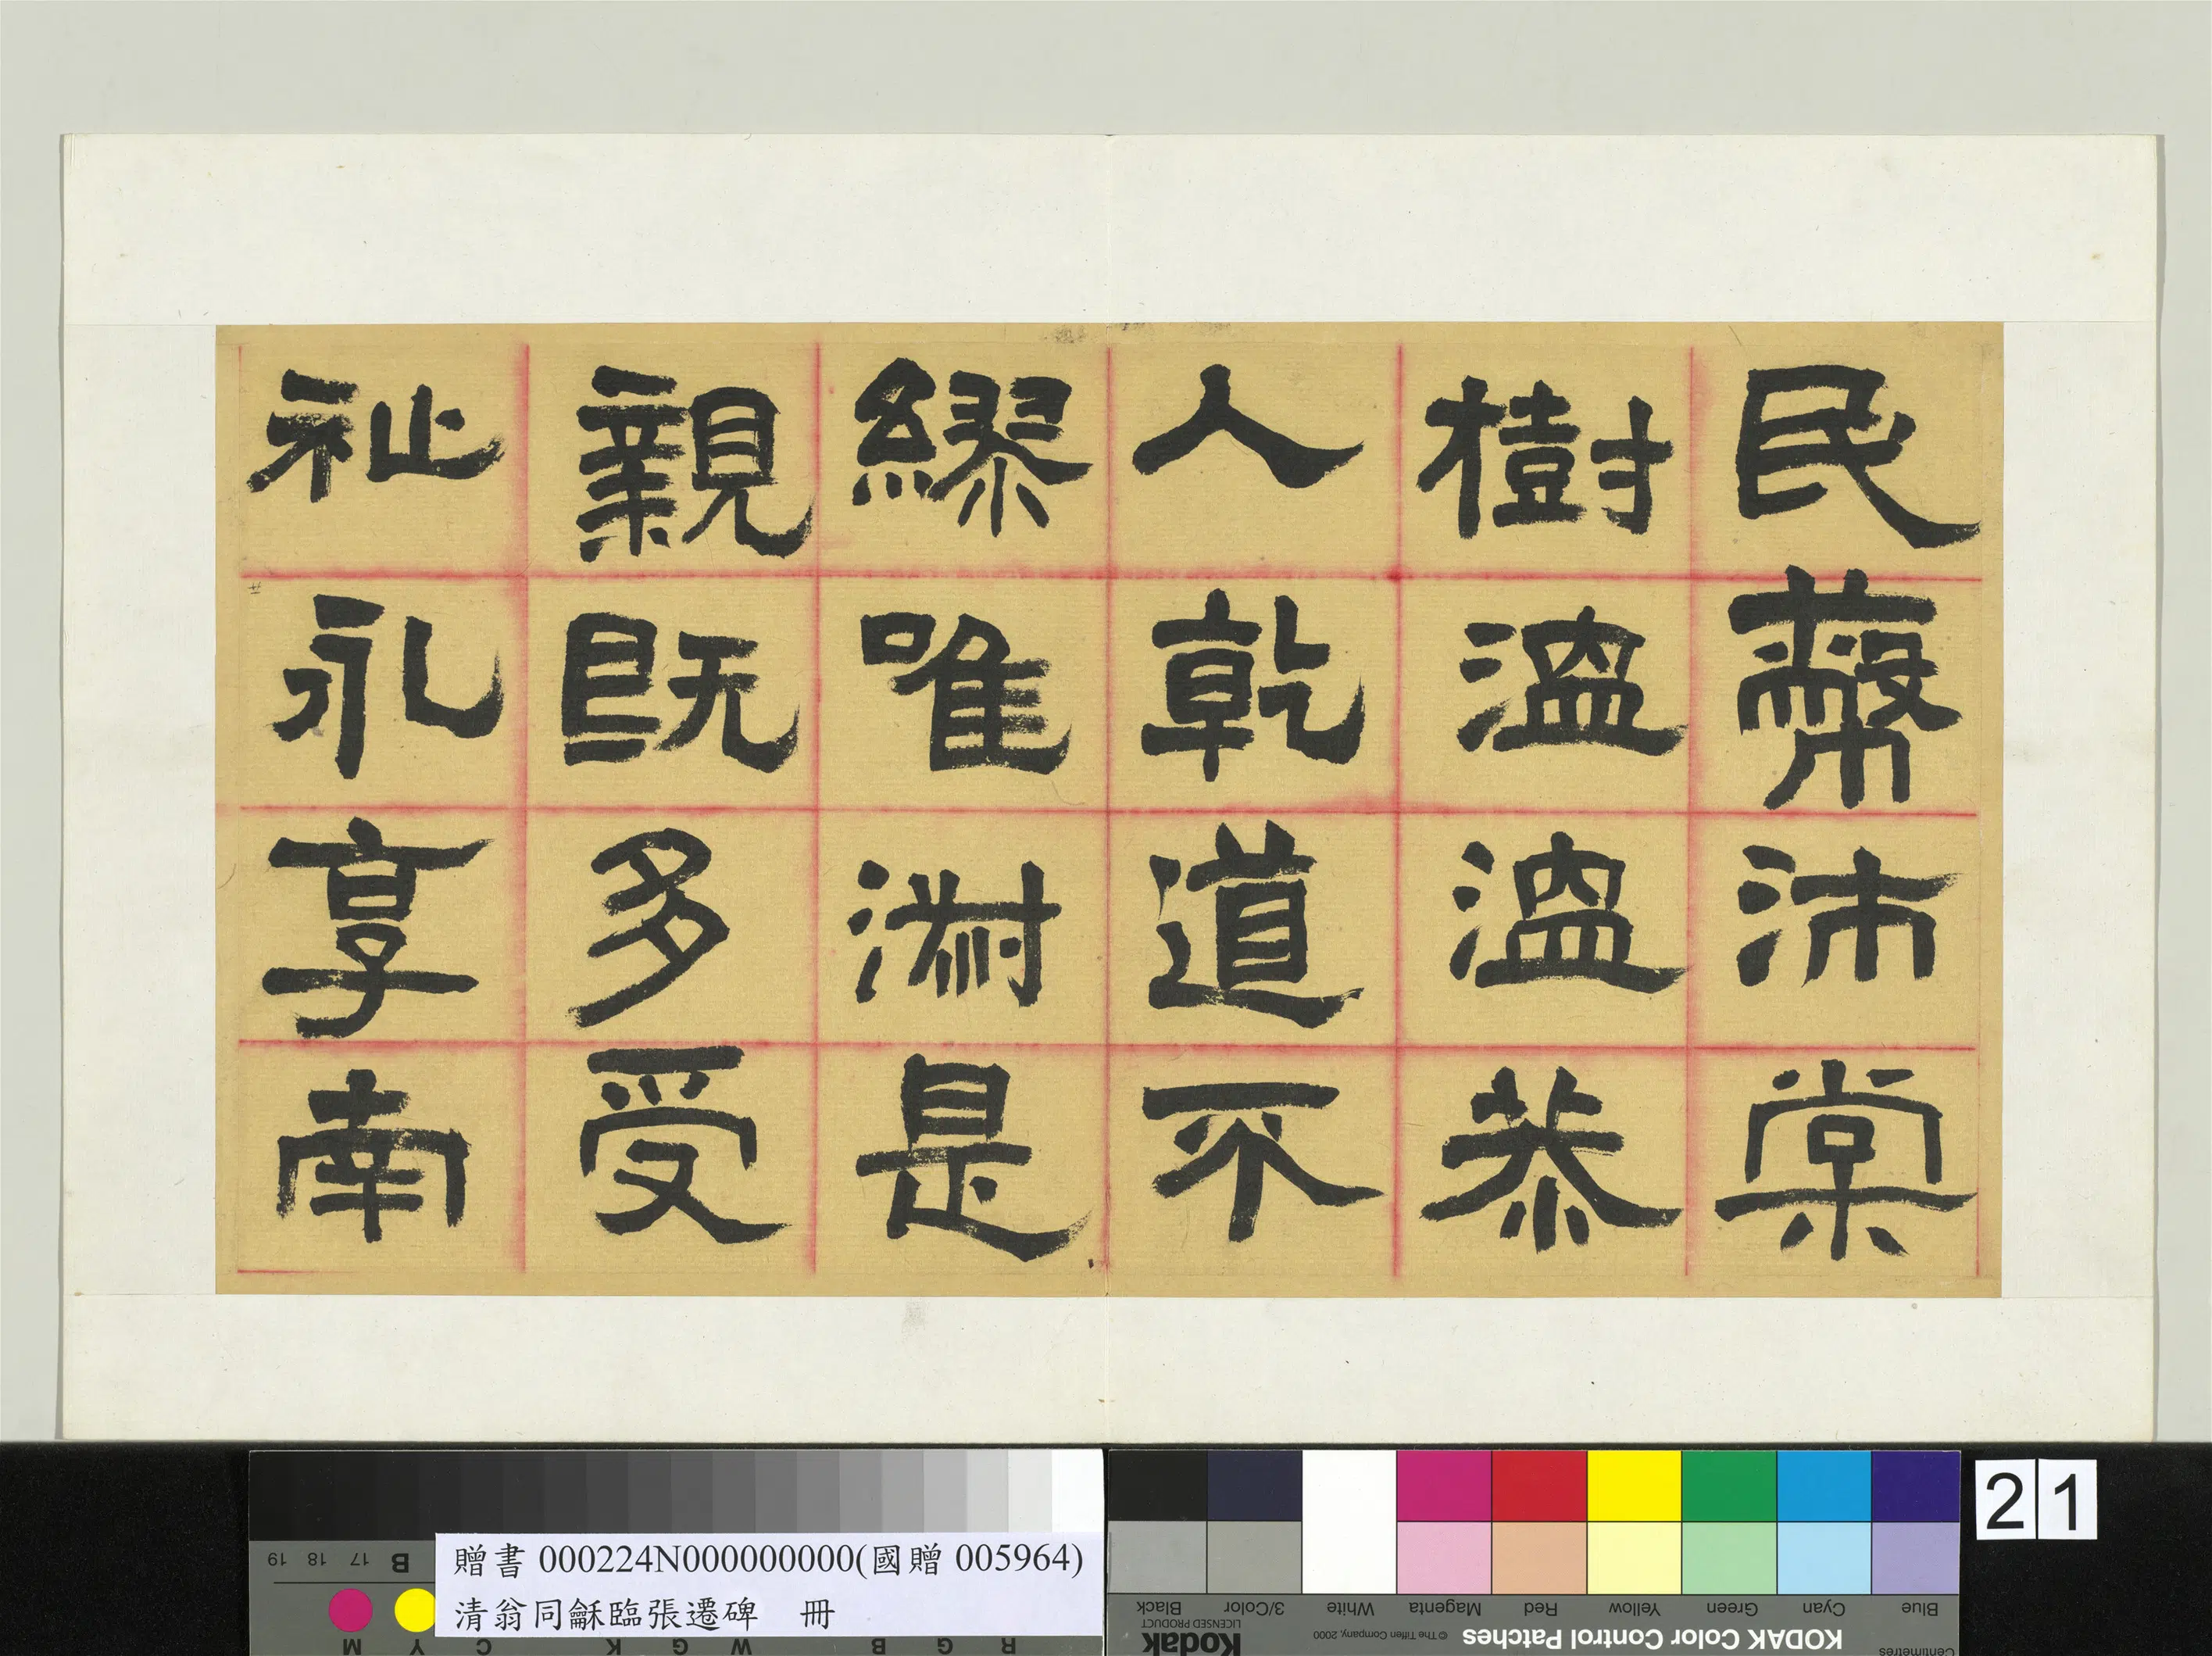 民蔽沛棠
樹溫溫恭
人乾道不
繆唯淑是
親既多受
祉永享南
贈書 000224N000000000(國贈 005964)
清翁同龢臨張遷碑 冊
21
KODAK Color Control Patches
© The Tiffen Company, 2000
Kodak
LICENSED PRODUCT
Blue Cyan Green Yellow Red Magenta White 3/Color Black
Centimetres
19 18 17 B
M Y C K G W G B G R